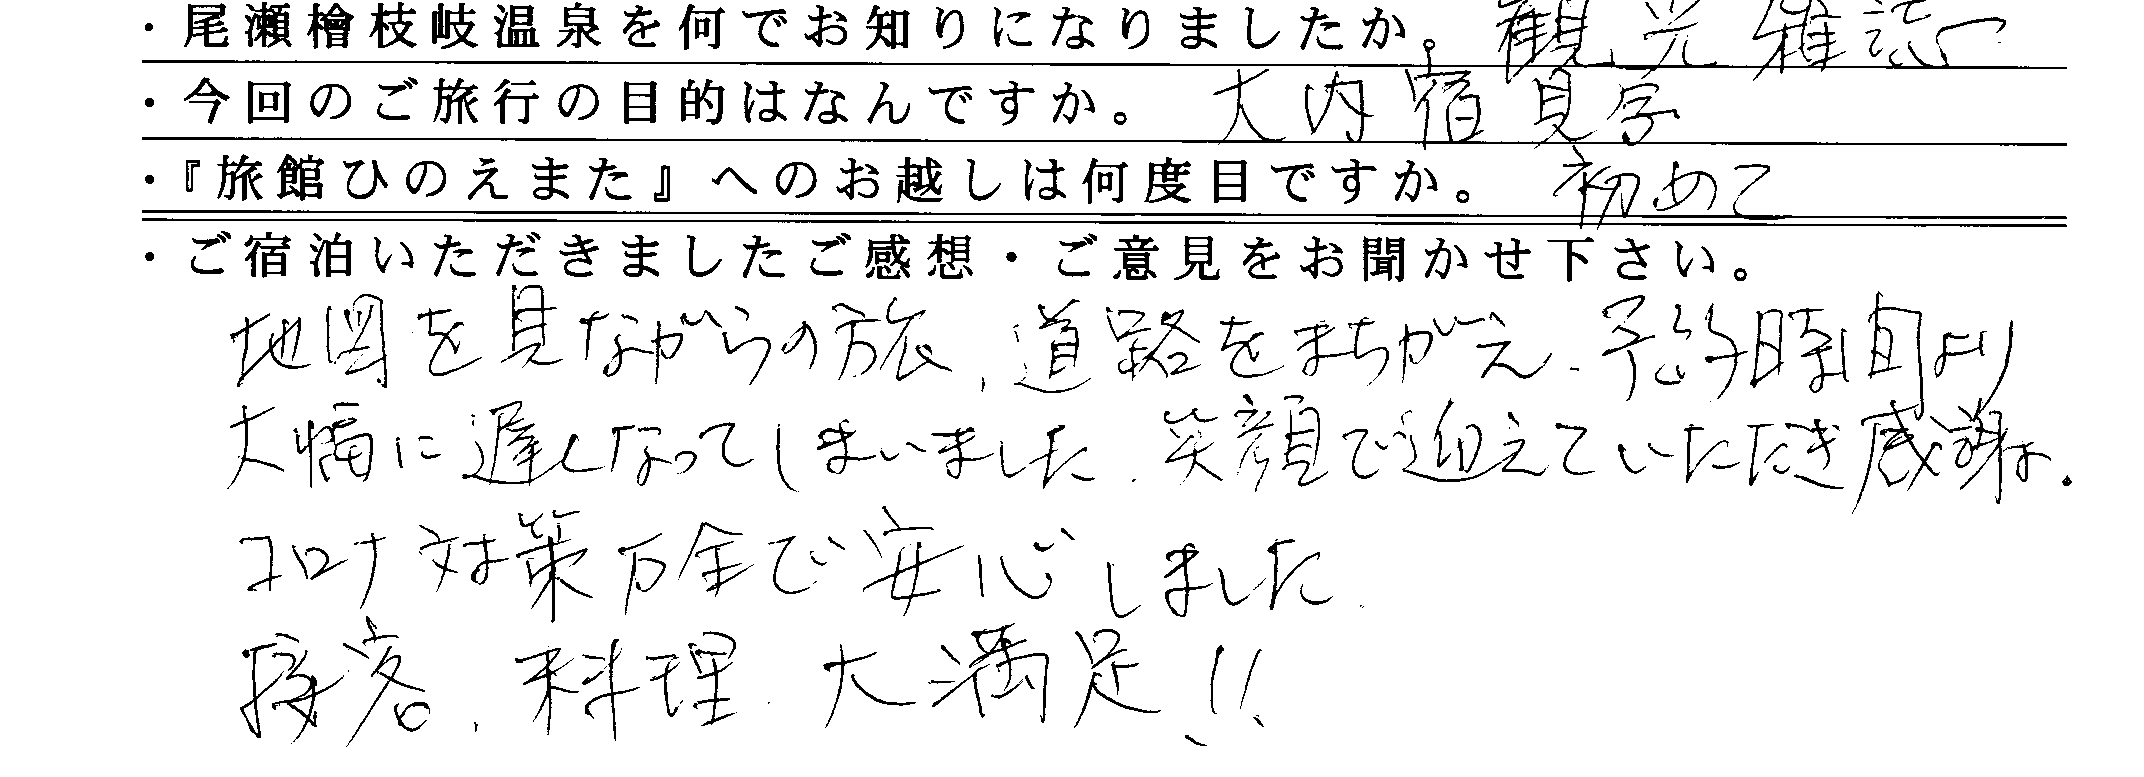 ・尾瀬檜枝岐温泉を何でお知りになりましたか。 観光雑誌
・今回のご旅行の目的はなんですか。 大内宿見学
・『旅館ひのえまた』へのお越しは何度目ですか。 初めて
・ご宿泊いただきましたご感想・ご意見をお聞かせ下さい。
地図を見ながらの旅、道路をまちがえ、予定時間より
大幅に遅くなってしまいました。笑顔で迎えていただき感謝です.
コロナ対策万全で安心しました。
接客、料理 大満足!!